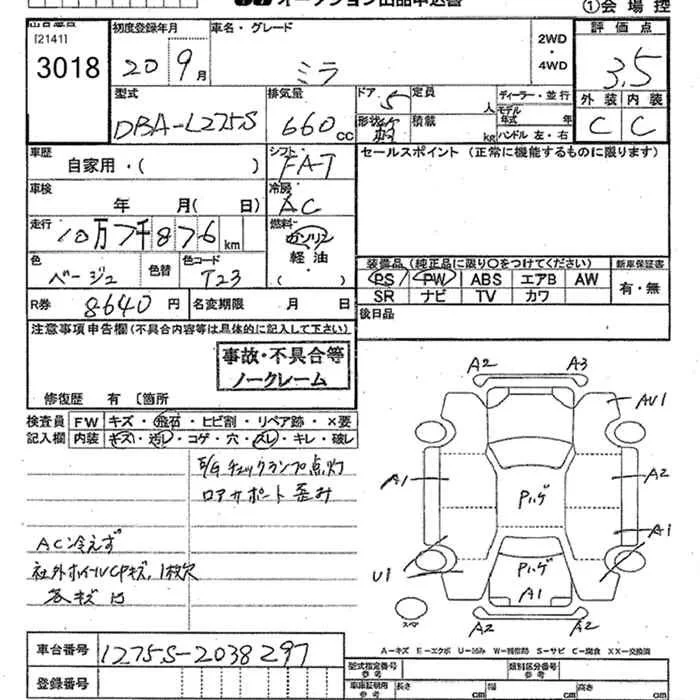 ①会場控
[2141]
3018
初度登録年月
20 9月
車名・グレード
ミラ
2WD
・
4WD
評価点
3.5
外装 内装
C C
型式
DBA-L275S
排気量
660 CC
ドア 5
定員 人
形状
積載 kg
ディーラー・並行
モデル年式 年
ハンドル 左・右
車歴
自家用・( )
シフト
FAT
セールスポイント (正常に機能するものに限ります)
車検
年 月( 日)
冷房
AC
走行
10万7千876 km
燃料
ガソリン
軽油
( )
色
ベージュ
色替
色コード
T23
装備品 (純正品に限り○をつけてください)
新車保証書
PS PW ABS エアB AW
有・無
SR ナビ TV カワ
R券 8640 円
名変期限 月 日
後日品
注意事項申告欄 (不具合内容等は具体的に記入して下さい)
事故・不具合等
ノークレーム
修復歴 有 〔箇所
検査員記入欄
FW キズ・飛石・ヒビ割・リペア跡・×要
内装 キズ・汚レ・コゲ・穴・スレ・キレ・破レ
E/Gチェックランプ点灯
ロアサポート歪み
AC冷えず
社外ホイールCPキズ、1枚欠
各キズ凹
A2 A3
AU1
A1
A2
Pハゲ
A1
U1
Pハゲ
A1
スペア
A2 A2
A-キズ E-エクボ U-凹み W-補修跡 S-サビ C-腐食 XX-交換済
車台番号 L275S-2038297
登録番号
型式指定番号
参考
類別区分番号
参考
車庫証明用
参考
長さ cm
幅 cm
高さ cm